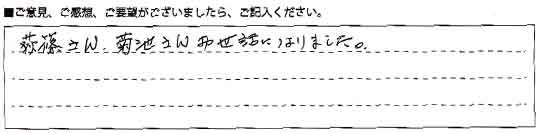 ■ご意見、ご感想、ご要望がございましたら、ご記入ください。
萩篠さん、菊池さんお世話になりました。